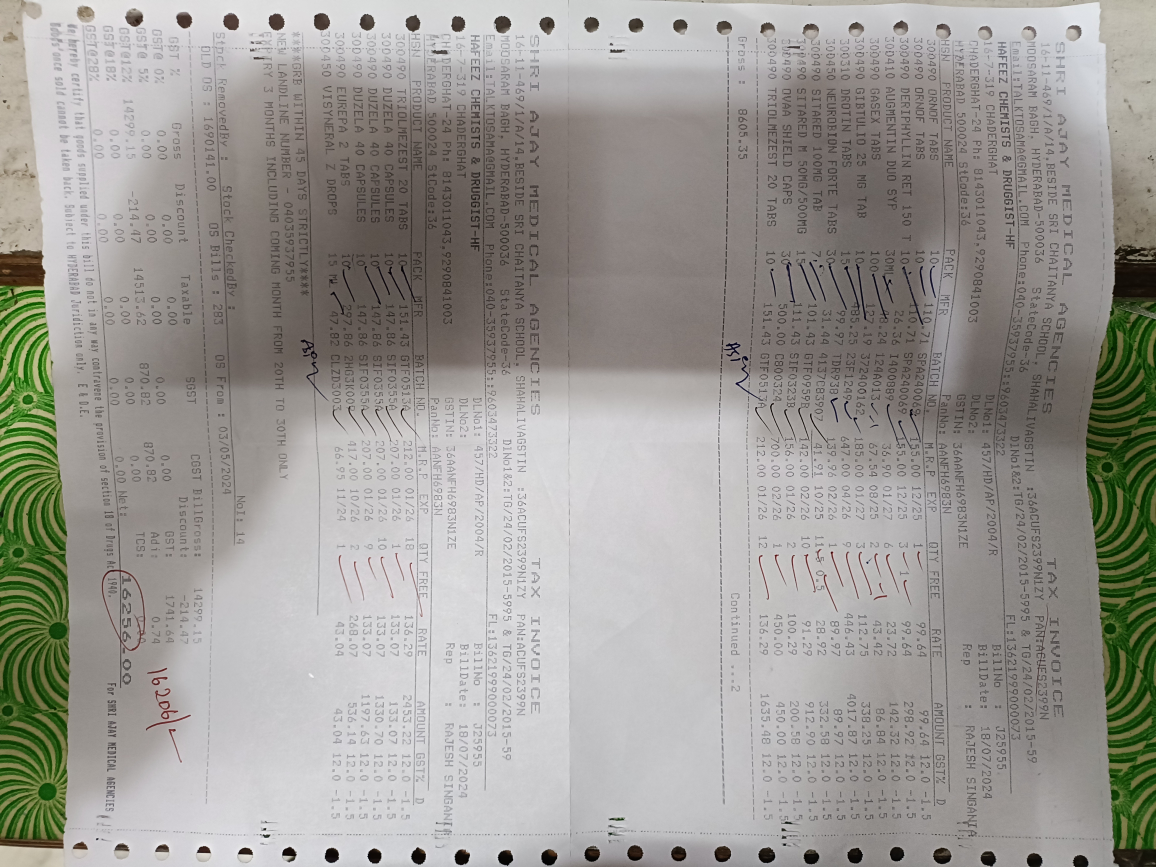 SHRI AJAY MEDICAL AGENCIES TAX INVOICE
16-11-469/1/A/14,BESIDE SRI CHAITANYA SCHOOL, SHAHALIVAGSTIN :36ACUFS2399N1ZY PAN:ACUFS2399N
MOOSARAM BAGH, HYDERABAD-500036 StateCode-36 DlNo1&2:TG/24/02/2015-5995 & TG/24/02/2015-59
Email:TALKTOSMA@GMAIL.COM Phone:040-35937955::9603473322 FL:13621999000073
HAFEEZ CHEMISTS & DRUGGIST-HF DLNo1: 457/HD/AP/2004/R BillNo : J25955
16-7-319 CHADERGHAT DLNo2: BillDate: 18/07/2024
CHADERGHAT-24 Ph: 8143011043,9290841003 GSTIN: 36AANFH6983N1ZE Rep : RAJESH SINGANIA
HYDERABAD 500024 StCode:36 PanNo: AANFH6983N
HSN PRODUCT NAME PACK MFR BATCH NO. M.R.P EXP QTY FREE RATE AMOUNT GST% D
300490 ORNOF TABS 10 110.71 SPA24006 155.00 12/25 1 99.64 99.64 12.0 -1.5
300490 ORNOF TABS 10 110.71 SPA240069 155.00 12/25 3 1 99.64 298.92 12.0 -1.5
300490 DERIPHYLLIN RET 150 T 26.36 I400889 36.90 01/27 6 23.72 142.32 12.0 -1.5
300410 AUGMENTIN DUO SYP 30ML 48.24 124A013 67.54 08/25 2 43.42 86.84 12.0 -1.5
300490 GASEX TABS 100 37240016 185.00 01/27 3 112.75 338.25 12.0 -1.5
300490 GIBTULIO 25 MG TAB 10 23F1249 647.00 04/26 9 446.43 4017.87 12.0 -1.5
300310 DROTIN TABS 15 99.97 TDR938 139.96 02/26 1 89.97 89.97 12.0 -1.5
300450 NEUROBION FORTE TABS 30 31.44 4137C83907 41.91 10/25 0.5 28.92 332.58 12.0 -1.5
300490 SITARED 100MG TAB 101.43 GTF0959B 142.00 01/26 10 91.29 912.90 12.0 -1.5
300490 SITARED M 50MG/500MG 15 111.43 SIF0323B 156.00 01/26 2 100.29 200.58 12.0 -1.5
300490 OVA SHIELD CAPS 30 500.00 CB00324 700.00 02/26 1 450.00 450.00 12.0 -1.5
300490 TRIOLMEZEST 20 TABS 10 151.43 GTF0513A 212.00 01/26 12 136.29 1635.48 12.0 -1.5
Gross: 8605.35 Continued ...2
SHRI AJAY MEDICAL AGENCIES TAX INVOICE
16-11-469/1/A/14,BESIDE SRI CHAITANYA SCHOOL, SHAHALIVAGSTIN :36ACUFS2399N1ZY PAN:ACUFS2399N
MOOSARAM BAGH, HYDERABAD-500036 StateCode-36 DlNo1&2:TG/24/02/2015-5995 & TG/24/02/2015-59
Email:TALKTOSMA@GMAIL.COM Phone:040-35937955::9603473322 FL:13621999000073
HAFEEZ CHEMISTS & DRUGGIST-HF DLNo1: 457/HD/AP/2004/R BillNo : J25955
16-7-319 CHADERGHAT DLNo2: BillDate: 18/07/2024
CHADERGHAT-24 Ph: 8143011043,9290841003 GSTIN: 36AANFH6983N1ZE Rep : RAJESH SINGANIA
HYDERABAD 500024 StCode:36 PanNo: AANFH6983N
HSN PRODUCT NAME PACK MFR BATCH NO. M.R.P EXP QTY FREE RATE AMOUNT GST% D
300490 TRIOLMEZEST 20 TABS 10 151.43 GTF0513A 212.00 01/26 18 136.29 2453.22 12.0 -1.5
300490 DUZELA 40 CAPSULES 10 147.86 SIF0355A 207.00 01/26 1 133.07 133.07 12.0 -1.5
300490 DUZELA 40 CAPSULES 10 147.86 SIF0355A 207.00 01/26 10 133.07 1330.70 12.0 -1.5
300490 DUZELA 40 CAPSULES 10 147.86 SIF0355A 207.00 01/26 9 133.07 1197.63 12.0 -1.5
300490 EUREPA 2 TABS 10 297.86 2HG3K006 417.00 10/26 2 268.07 536.14 12.0 -1.5
300450 VISYNERAL Z DROPS 15 ML 47.82 CLZD3003 66.95 11/24 1 43.04 43.04 12.0 -1.5
****GRB WITHIN 45 DAYS STRICTLY****
NEW LANDLINE NUMBER - 04035937955
EXPIRY 3 MONTHS INCLUDING COMING MONTH FROM 20TH TO 30TH ONLY
NoI: 14
Stock RemovedBy : Stock CheckedBy :
OLD OS : 1690141.00 OS Bills : 283 OS From : 03/05/2024
GST % Gross Discount Taxable SGST CGST BillGross: 14299.15
GST@ 0% 0.00 0.00 0.00 0.00 0.00 Discount: -214.47
GST@ 5% 0.00 0.00 0.00 0.00 0.00 GST: 1741.64
GST@12% 14299.15 -214.47 14513.62 870.82 870.82 Adj: 0.74
GST@18% 0.00 0.00 0.00 0.00 0.00 TCS:
GST@28% 0.00 0.00 0.00 0.00 0.00 Net: 16256.00
16206/-
We hereby certify that goods supplied under this bill do not in any way contravene the provision of section 18 of Drugs Act 1940.
Goods once sold cannot be taken back. Subject to HYDERABAD Jurisdiction only. E & O.E. For SHRI AJAY MEDICAL AGENCIES